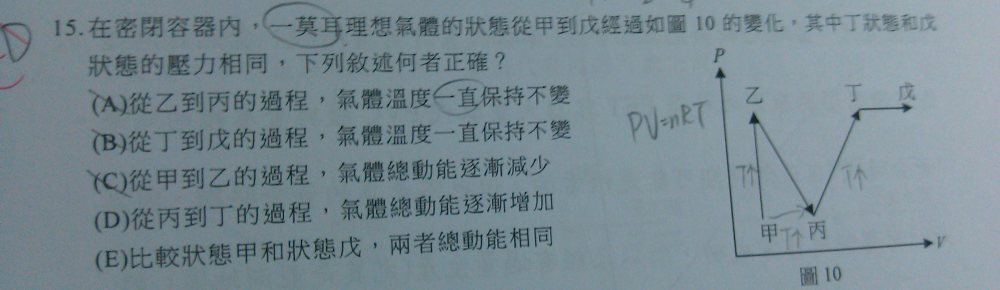 15.在密閉容器內，一莫耳理想氣體的狀態從甲到戊經過如圖 10 的變化，其中丁狀態和戊
狀態的壓力相同，下列敘述何者正確？
(A)從乙到丙的過程，氣體溫度一直保持不變
(B)從丁到戊的過程，氣體溫度一直保持不變
(C)從甲到乙的過程，氣體總動能逐漸減少
(D)從丙到丁的過程，氣體總動能逐漸增加
(E)比較狀態甲和狀態戊，兩者總動能相同
PV=nRT
P
乙 丁 戊
T↑ T↑
甲 T↑ 丙
V
圖 10